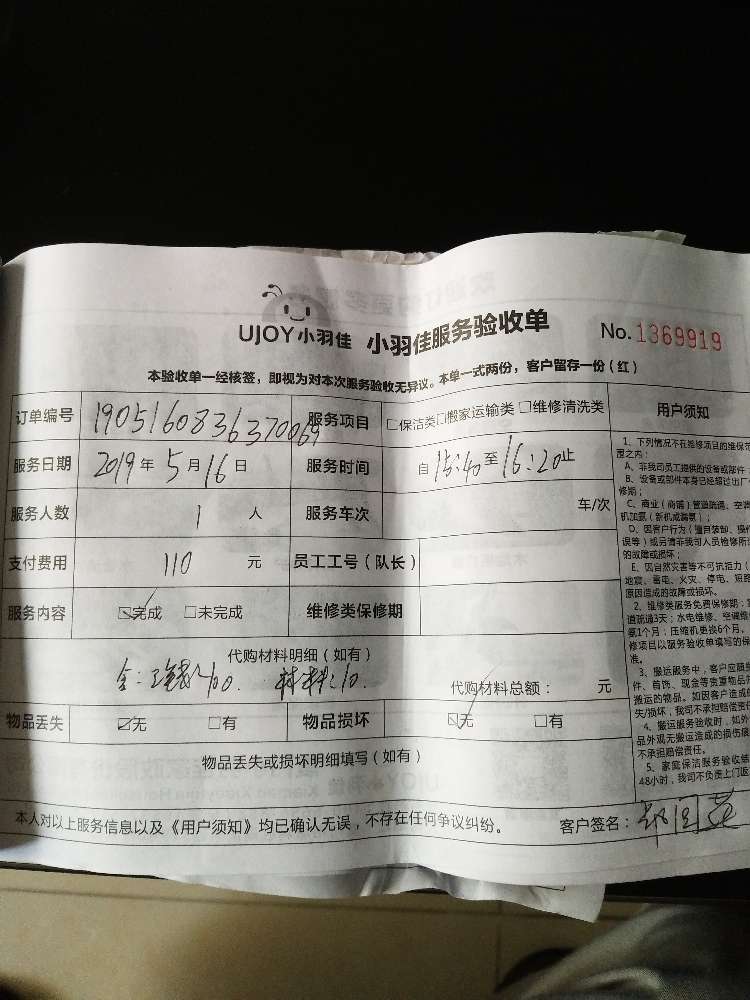 UJOY小羽佳 小羽佳服务验收单 No.1369919
本验收单一经核签，即视为对本次服务验收无异议。本单一式两份，客户留存一份（红）
订单编号 1905160836370069 服务项目 □保洁类□搬家运输类 □维修清洗类 用户须知
服务日期 2019年5月16日 服务时间 自15:40至16:20止
服务人数 1人 服务车次 车/次
支付费用 110元 员工工号（队长）
服务内容 ☑完成 □未完成 维修类保修期
代购材料明细（如有）
100. 材料:10. 代购材料总额： 元
物品丢失 ☑无 □有 物品损坏 ☑无 □有
物品丢失或损坏明细填写（如有）
本人对以上服务信息以及《用户须知》均已确认无误，不存在任何争议纠纷。 客户签名：
1、下列情况不在维修项目的维保范
围之内：
A、非我司员工提供的设备或部件
B、设备或部件本身已经超过出厂
修期；
C、商业（商铺）管道疏通、空调
机加氟（新机或漏氟）；
D、因客户行为（擅自装卸、操作
误等）或另请非我司人员检修所
的故障或损坏；
E、因自然灾害等不可抗阻力（
地震、雷电、火灾、停电、短路
原因造成的故障或损坏。
2、维修类服务免费保修期：
道疏通3天；水电维修、空调
氟1个月；压缩机更换6个月，
修项目以服务验收单填写的保
准。
3、搬运服务中，客户应随
件、首饰、现金等贵重物品
搬运的物品。如因客户造成
失/损坏，我司不承担赔偿责任
4、搬运服务验收时，如外
品外观无搬运造成的损伤痕
不承担赔偿责任。
5、家庭保洁服务验收
48小时，我司不负责上门返